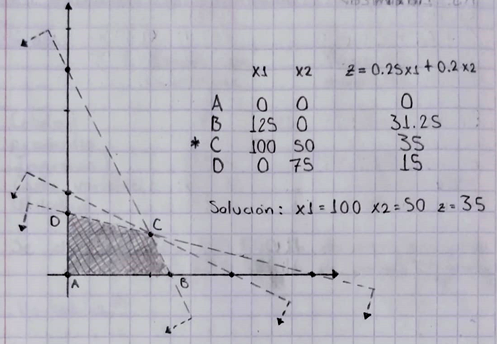 x1 x2 z=0.25x1+0.2x2
A 0 0 0
B 125 0 31.25
* C 100 50 35
D 0 75 15
Solución: x1=100 x2=50 z=35
D
C
A
B